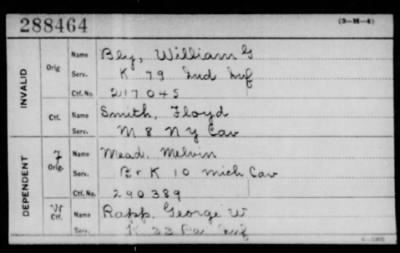 288464
(3-M-4)
INVALID
Orig Name Bly, William G
Serv. K 79 Ind Inf
Ctf. No. 217045
Ctf. Name Smith, Floyd
Serv. M 8 N Y Cav
DEPENDENT
Orig. Name Mead, Melvin
Serv. B + K 10 Mich Cav
Ctf. No. 290389
Ctf. Name Rapp, George W
Serv. K 33 Inf